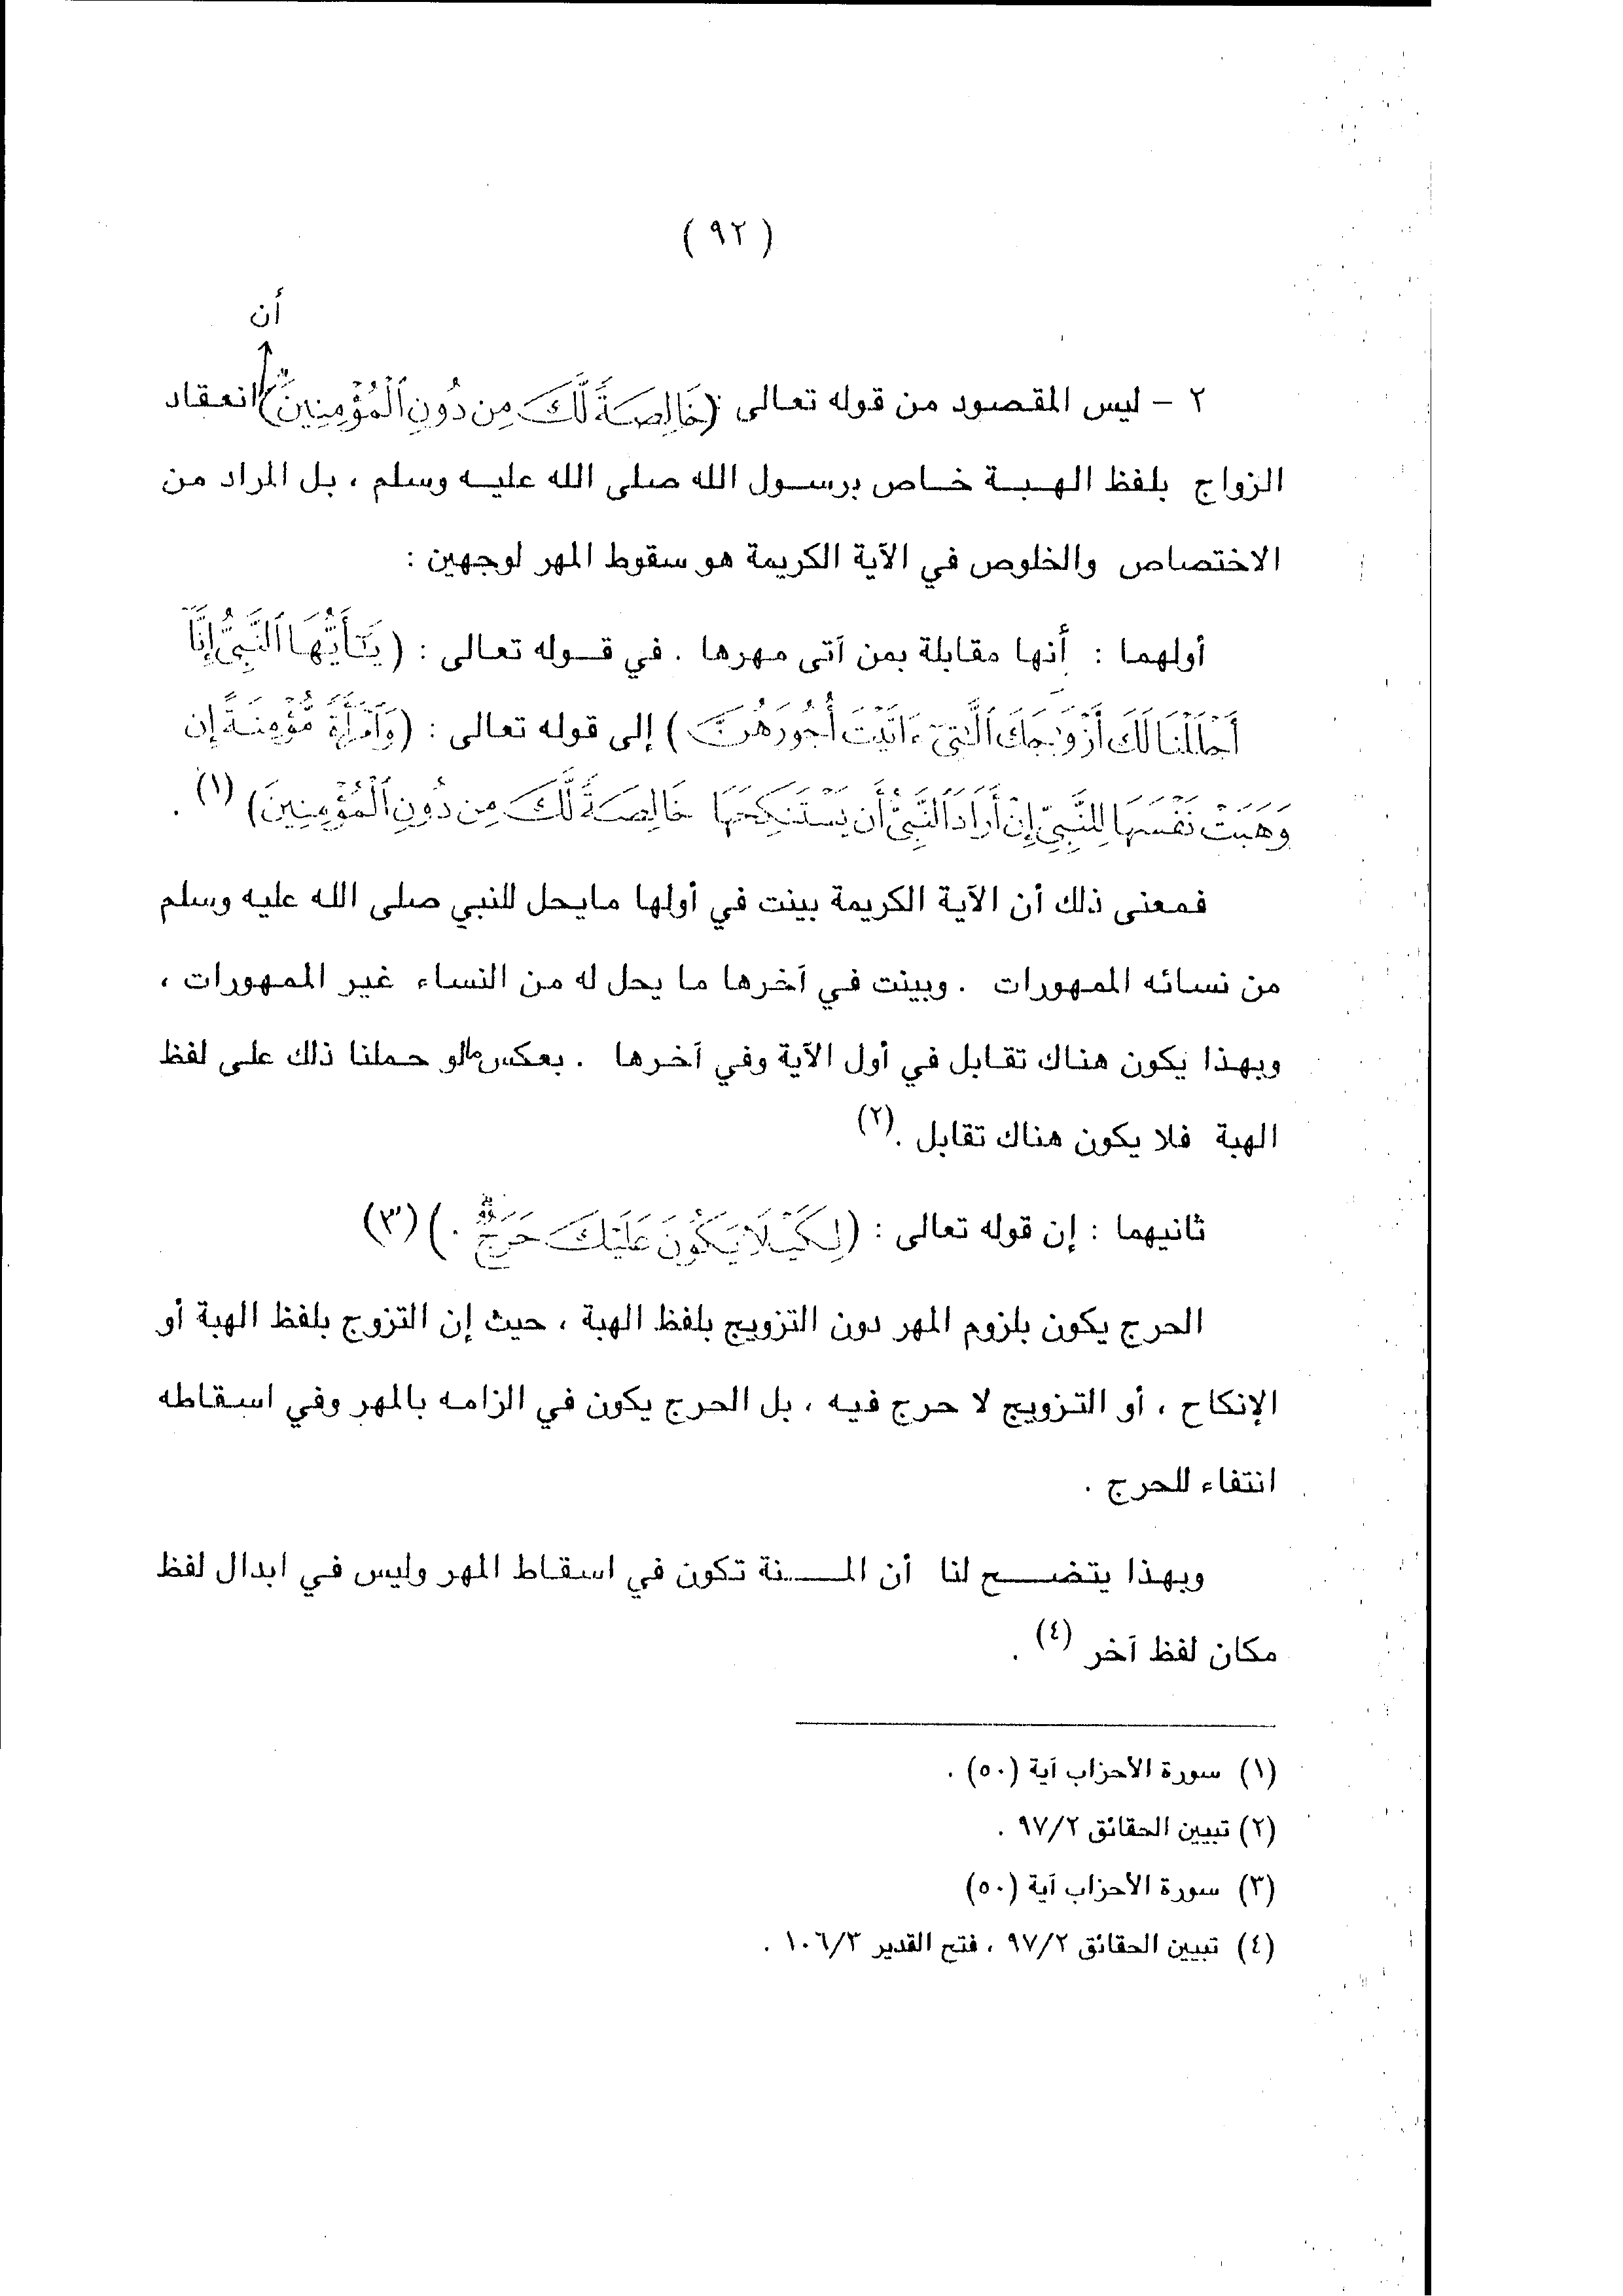 ( ٩٢ )
أن
٢ - ليس المقصود من قوله تعالى : (خَالِصَةً لَّكَ مِن دُونِ ٱلْمُؤْمِنِينَۗ) انعقاد
الزواج بلفظ الهبة خاص برسول الله صلى الله عليه وسلم ، بل المراد من
الاختصاص والخلوص في الآية الكريمة هو سقوط المهر لوجهين :
أولهما : أنها مقابلة بمن آتى مهرها . في قوله تعالى : ( يَٰٓأَيُّهَا ٱلنَّبِىُّ إِنَّآ
أَحْلَلْنَا لَكَ أَزْوَٰجَكَ ٱلَّٰتِىٓ ءَاتَيْتَ أُجُورَهُنَّ ) إلى قوله تعالى : (وَٱمْرَأَةً مُّؤْمِنَةً إِن
وَهَبَتْ نَفْسَهَا لِلنَّبِىِّ إِنْ أَرَادَ ٱلنَّبِىُّ أَن يَسْتَنكِحَهَا خَالِصَةً لَّكَ مِن دُونِ ٱلْمُؤْمِنِينَ) (١) .
فمعنى ذلك أن الآية الكريمة بينت في أولها مايحل للنبي صلى الله عليه وسلم
من نسائه الممهورات . وبينت في آخرها ما يحل له من النساء غير الممهورات ،
وبهذا يكون هناك تقابل في أول الآية وفي آخرها . بعكس ما لو حملنا ذلك على لفظ
الهبة فلا يكون هناك تقابل .(٢)
ثانيهما : إن قوله تعالى : (لِكَيْلَا يَكُونَ عَلَيْكَ حَرَجٌۗ .) (٣)
الحرج يكون بلزوم المهر دون التزويج بلفظ الهبة ، حيث إن التزوج بلفظ الهبة أو
الإنكاح ، أو التزويج لا حرج فيه ، بل الحرج يكون في الزامه بالمهر وفي اسقاطه
انتفاء للحرج .
وبهذا يتضح لنا أن المنة تكون في اسقاط المهر وليس في ابدال لفظ
مكان لفظ آخر (٤) .
(١) سورة الأحزاب آية (٥٠) .
(٢) تبيين الحقائق ٩٧/٢ .
(٣) سورة الأحزاب آية (٥٠)
(٤) تبيين الحقائق ٩٧/٢ ، فتح القدير ١٠٦/٣ .